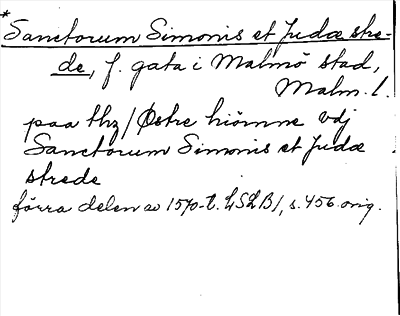 *Sanctorum Simonis et Judæ stre-
de, f. gata i Malmö stad,
Malm. l.
paa thz / Østre hiörnne vdj
Sanctorum Simonis et Judæ
strede
förra delen av 1570-t. LSLB1, s. 456 orig.